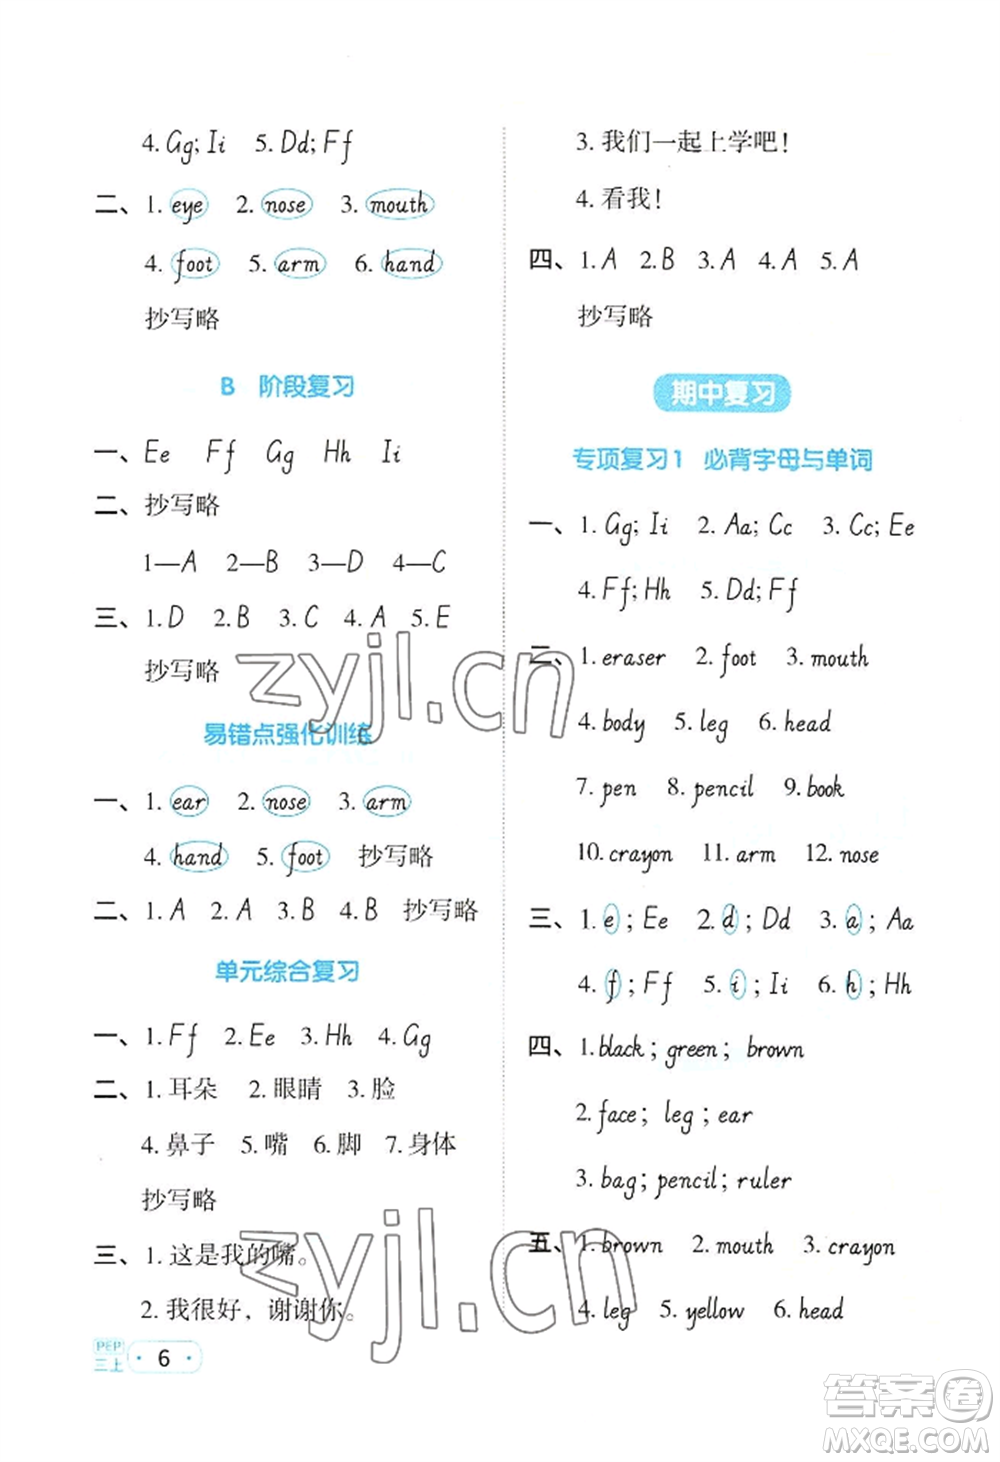 4. Gg; Ii 5. Dd; Ff
二、1. eye 2. nose 3. mouth
4. foot 5. arm 6. hand
抄写略
B 阶段复习
一、Ee Ff Gg Hh Ii
二、抄写略
1—A 2—B 3—D 4—C
三、1. D 2. B 3. C 4. A 5. E
抄写略
易错点强化训练
一、1. ear 2. nose 3. arm
4. hand 5. foot 抄写略
二、1. A 2. A 3. B 4. B 抄写略
单元综合复习
一、1. Ff 2. Ee 3. Hh 4. Gg
二、1. 耳朵 2. 眼睛 3. 脸
4. 鼻子 5. 嘴 6. 脚 7. 身体
抄写略
三、1. 这是我的嘴。
2. 我很好，谢谢你。
PEP
三上
6
3. 我们一起上学吧！
4. 看我！
四、1. A 2. B 3. A 4. A 5. A
抄写略
期中复习
专项复习1 必背字母与单词
一、1. Gg; Ii 2. Aa; Cc 3. Cc; Ee
4. Ff; Hh 5. Dd; Ff
二、1. eraser 2. foot 3. mouth
4. body 5. leg 6. head
7. pen 8. pencil 9. book
10. crayon 11. arm 12. nose
三、1. e; Ee 2. d; Dd 3. a; Aa
4. f; Ff 5. i; Ii 6. h; Hh
四、1. black; green; brown
2. face; leg; ear
3. bag; pencil; ruler
五、1. brown 2. mouth 3. crayon
4. leg 5. yellow 6. head
zyjl.cn
zyjl.cn
答案卷
MXQE.COM